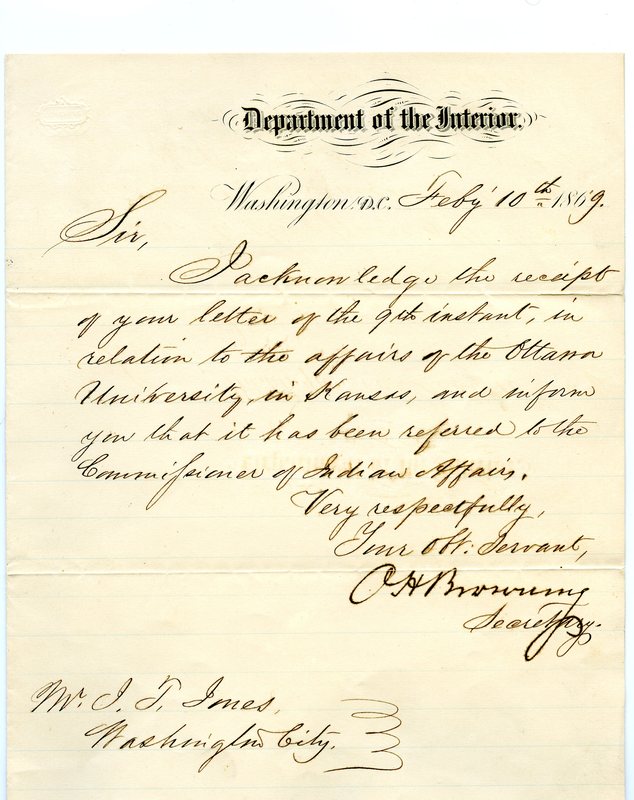 Department of the Interior.
Washington D.C. Feby 10th 1869.
Sir,
I acknowledge the receipt
of your letter of the 9th instant, in
relation to the affairs of the Ottawa
University, in Kansas, and inform
you that it has been referred to the
Commissioner of Indian Affairs.
Very respectfully,
Your Obt. Servant,
O H Browning
Secretary.
Mr. J. T. Jones,
Washington City.